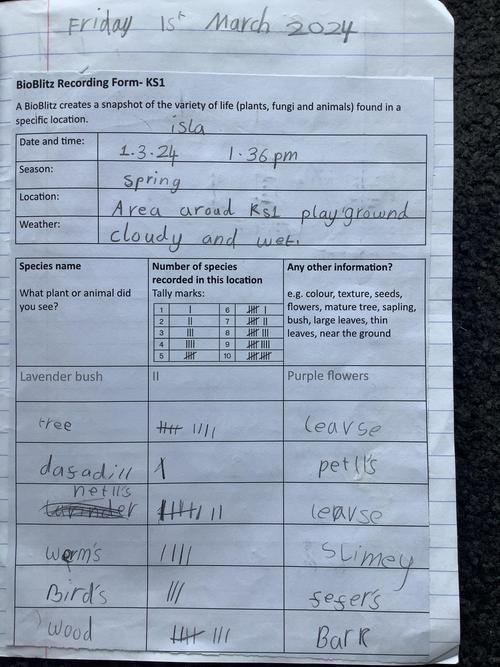 Friday 1st March 2024
BioBlitz Recording Form- KS1
A BioBlitz creates a snapshot of the variety of life (plants, fungi and animals) found in a
specific location.
isla
Date and time: 1.3.24 1.36pm
Season: Spring
Location: Area aroud KS1 playground
Weather: cloudy and wet.
Species name
What plant or animal did
you see?
Number of species
recorded in this location
Tally marks:
1 | 6 |||| |
2 || 7 |||| ||
3 ||| 8 |||| |||
4 |||| 9 |||| ||||
5 |||| 10 |||| ||||
Any other information?
e.g. colour, texture, seeds,
flowers, mature tree, sapling,
bush, large leaves, thin
leaves, near the ground
Lavender bush || Purple flowers
tree |||| |||| leavse
dafadill | petll's
netll's
|||| || leavse
worm's |||| Slimey
Bird's ||| fefer's
wood |||| ||| BarK